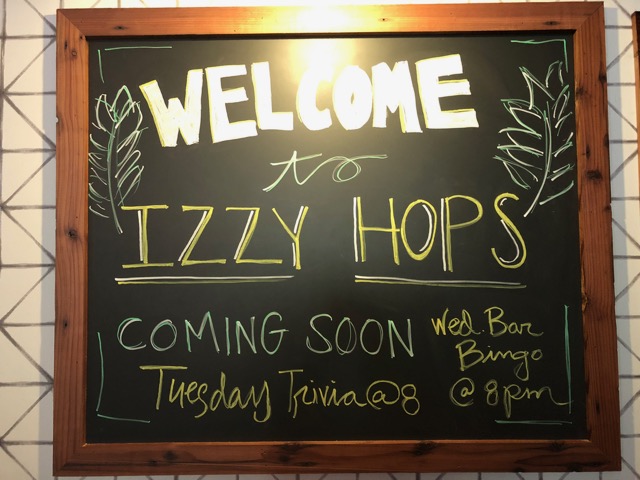 WELCOME
to
IZZY HOPS
COMING SOON
Tuesday Trivia@8
Wed. Bar
Bingo
@ 8pm